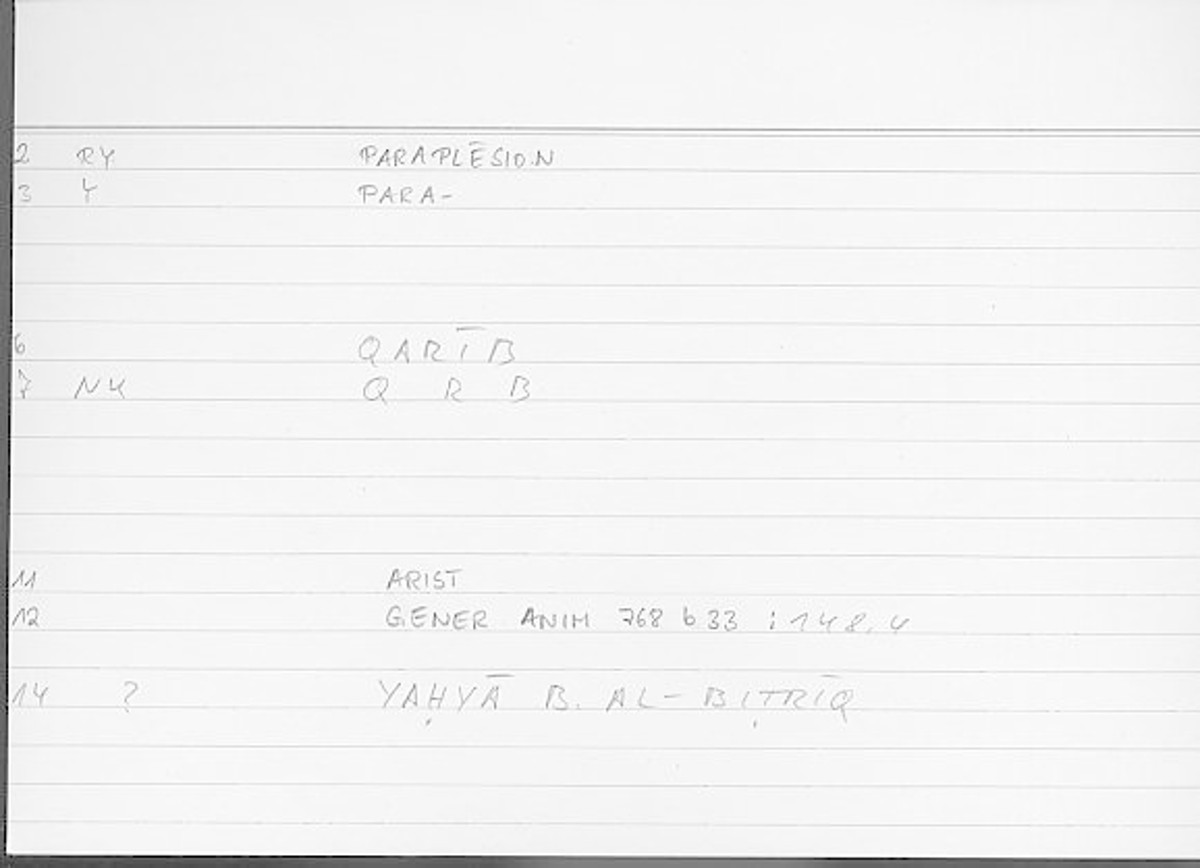 2 RY PARAPLĒSION
3 Y PARA-
6 QARĪB
7 NK Q R B
11 ARIST
12 GENER ANIM 768 b 33 : 148,4
14 ? YAḤYĀ B. AL-BIṬRĪQ